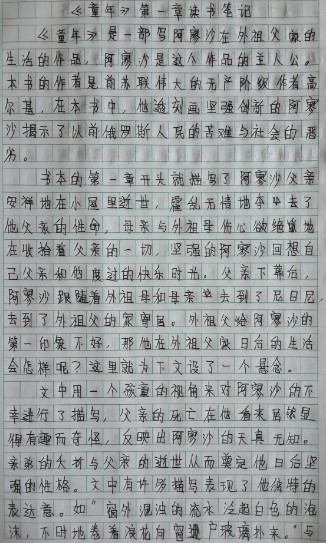 《童年》第一章读书笔记
《童年》是一部写阿廖沙在外祖父家的
生活的作品，阿廖沙是这个作品的主人公。
本书的作者是前苏联伟大的无产阶级作者高
尔基，在本书中，他透刻画坚强创新的阿廖
沙揭示了以前俄罗斯人民的苦难与社会的恶
劣。
书本的第一章开头就描写了阿廖沙父亲
安祥地在小屋里逝世，霍乱无情地夺去了
他父亲的性命，母亲与外祖母伤心欲绝地
在收拾着父亲的一切，坚强的阿廖沙回想自
己父亲和他度过的快乐时光。父亲下葬后，
阿廖沙跟随着外祖母和母亲去到了尼日尼，
去到了外祖父的家里居。外祖父给阿廖沙的
第一印象不好，那他在外祖父家日后的生活
会怎样呢？这里就为下文设了一个悬念。
文中用一个孩童的视角来对阿廖沙的不
幸进行了描写，父亲的死亡在他看来居然是
很有趣而奇怪，反映出阿廖沙的天真无知。
亲弟的夭折与父亲的逝世从而奠定他日后坚
强的性格。文中有许多描写表现了他独特的
表达意。如“窗外混浊的流水泛起白色的泡
沫，不时地卷着浪花向窗玻璃扑来。”与